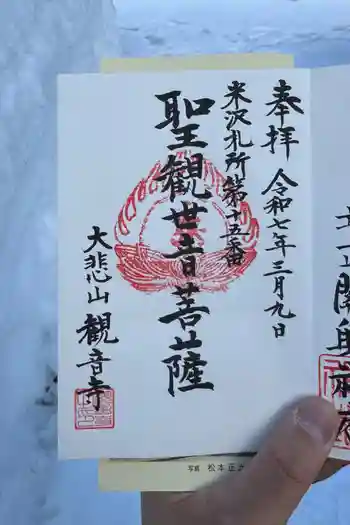 奉拝 令和七年三月九日
米沢札所第十五番
聖観世音菩薩
大悲山 観音寺
写真 松本正